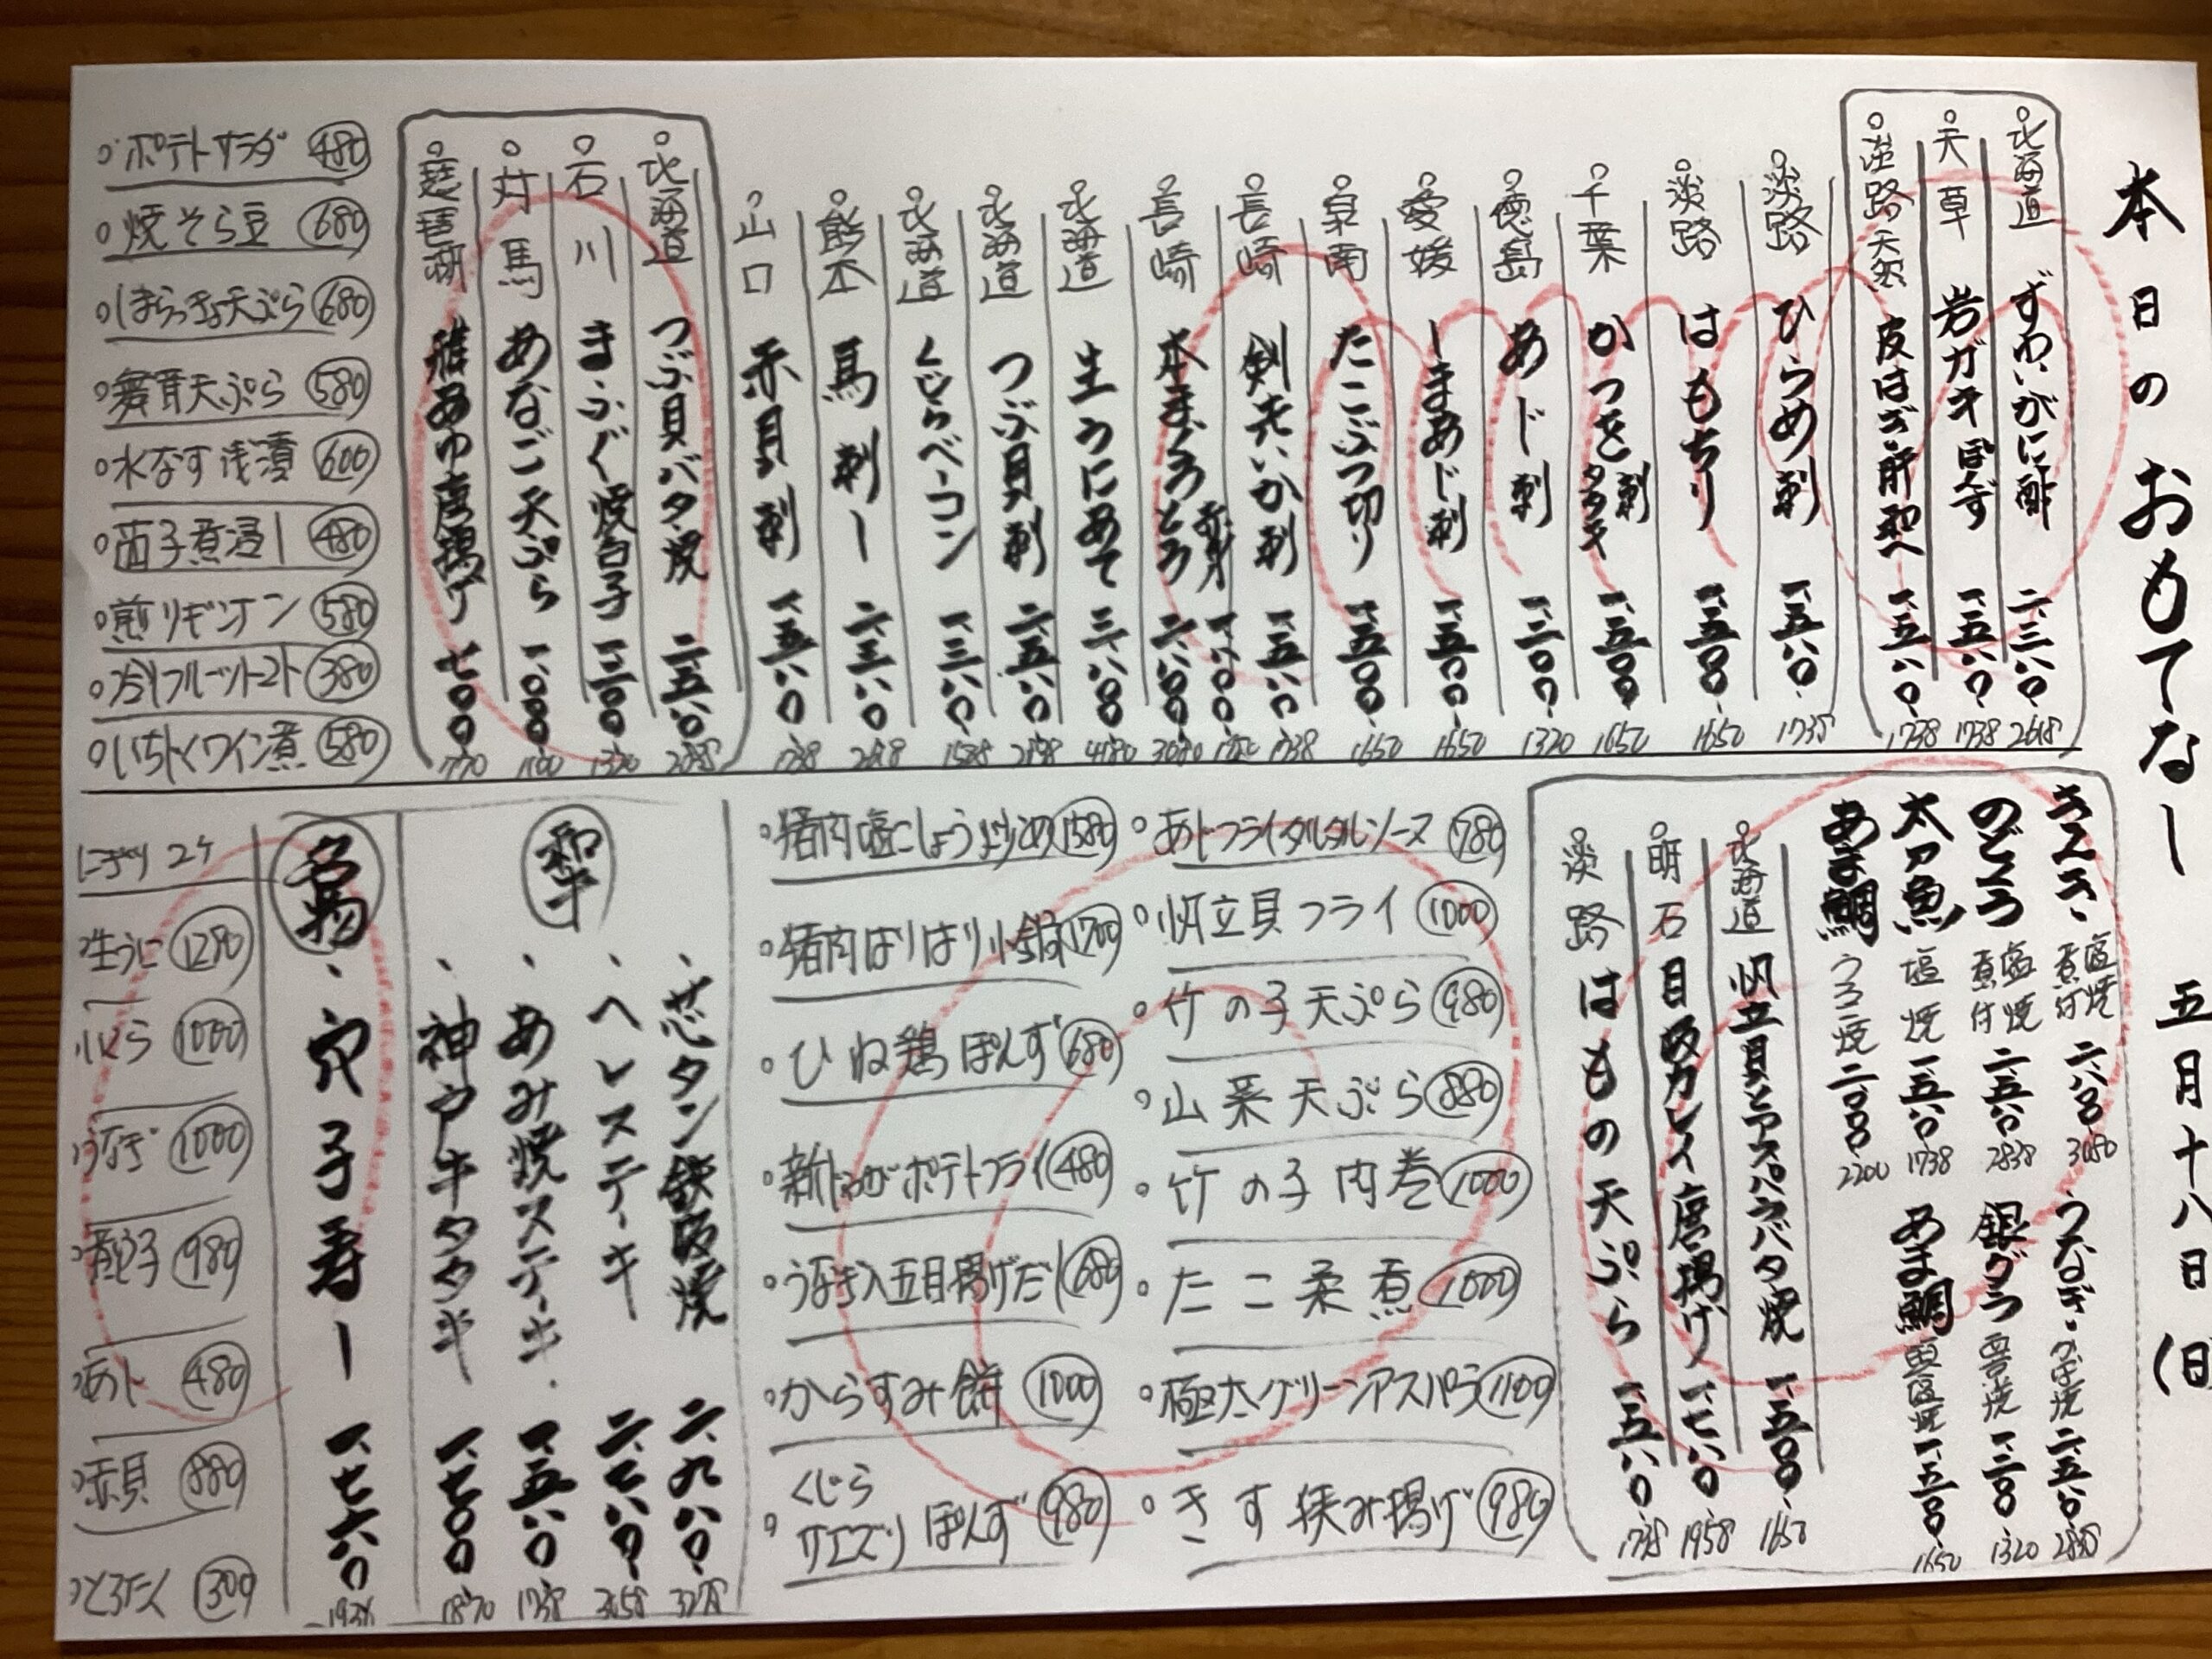 本日のおもてなし 五月十八日(日
北海道 ずわいがに酢 二、三八〇 2618
天草 岩ガキぽんず 一、五八〇 1738
淡路 天然 皮はぎ 肝和へ 一、五八〇 1738
淡路 ひらめ刺 一、五八〇 1738
淡路 はもちり 一、五〇〇 1650
千葉 かつを刺 タタキ 一、五〇〇 1650
徳島 あじ刺 一、二〇〇 1320
愛媛 しまあじ刺 一、五〇〇 1650
泉南 たこぶつ切り 一、五〇〇 1650
長崎 剣先いか刺 一、五八〇 1738
長崎 本まぐろ 赤身 とろ 二、八〇〇 3080
北海道 生うにあて 三、八〇〇 4180
北海道 つぶ貝刺
北海道 くじらベーコン
熊本 馬刺し 二、三八〇
山口 赤貝刺 一、五八〇 1738
北海道 つぶ貝バタ焼
石川 まふぐ焼白子 一、二〇〇 1320
対馬 あなご天ぷら 一、〇〇〇 1100
琵琶湖 稚あゆ唐揚げ 七〇〇 770
ポテトサラダ 480
焼そら豆 680
しまらっきょ天ぷら 680
舞茸天ぷら 580
水なす浅漬 600
茄子煮浸し 480
煎りギンナン 580
冷しフルーツトマト 380
いちじくワイン煮 580
きんき 塩焼 煮付 二、八〇〇 3080
のどぐろ 塩焼 煮付 二、五八〇 2838
太刀魚 塩焼 一、五八〇 1738
あま鯛 うろこ焼 二、〇〇〇 2200
うなぎ かば焼 二、五八〇 2838
銀ダラ 西京焼 一、二〇〇 1320
あま鯛 一、五〇〇 1650
北海道 帆立貝とアスパラバタ焼 一、五〇〇 1650
明石 目板カレイ唐揚げ 一、七八〇 1958
淡路 はもの天ぷら 一、五八〇 1738
あじフライタルタルソース 780
帆立貝フライ 1000
竹の子天ぷら 980
山菜天ぷら 880
竹の子肉巻 1000
たこ柔煮 1000
極太グリーンアスパラ 1100
きす挟み揚げ 980
猪肉塩こしょう炒め 1580
猪肉はりはり小鍋 1700
ひね鶏ぽんず 680
新じゃがポテトフライ 480
うなぎ入五目揚げだし 680
からすみ餅 1000
くじらサエズリぽんず 980
和牛
芯タン鉄板焼 二、九八〇 3278
ヘレステーキ 二、七八〇 3058
あみ焼ステーキ 一、五八〇 1738
神戸牛タタキ 一、七〇〇 1870
名物
穴子寿し 一、七六〇
にぎり 2ケ
生うに 1280
いくら 1000
うなぎ 1000
穴子 980
あじ 480
赤貝 880
とろたく 1300